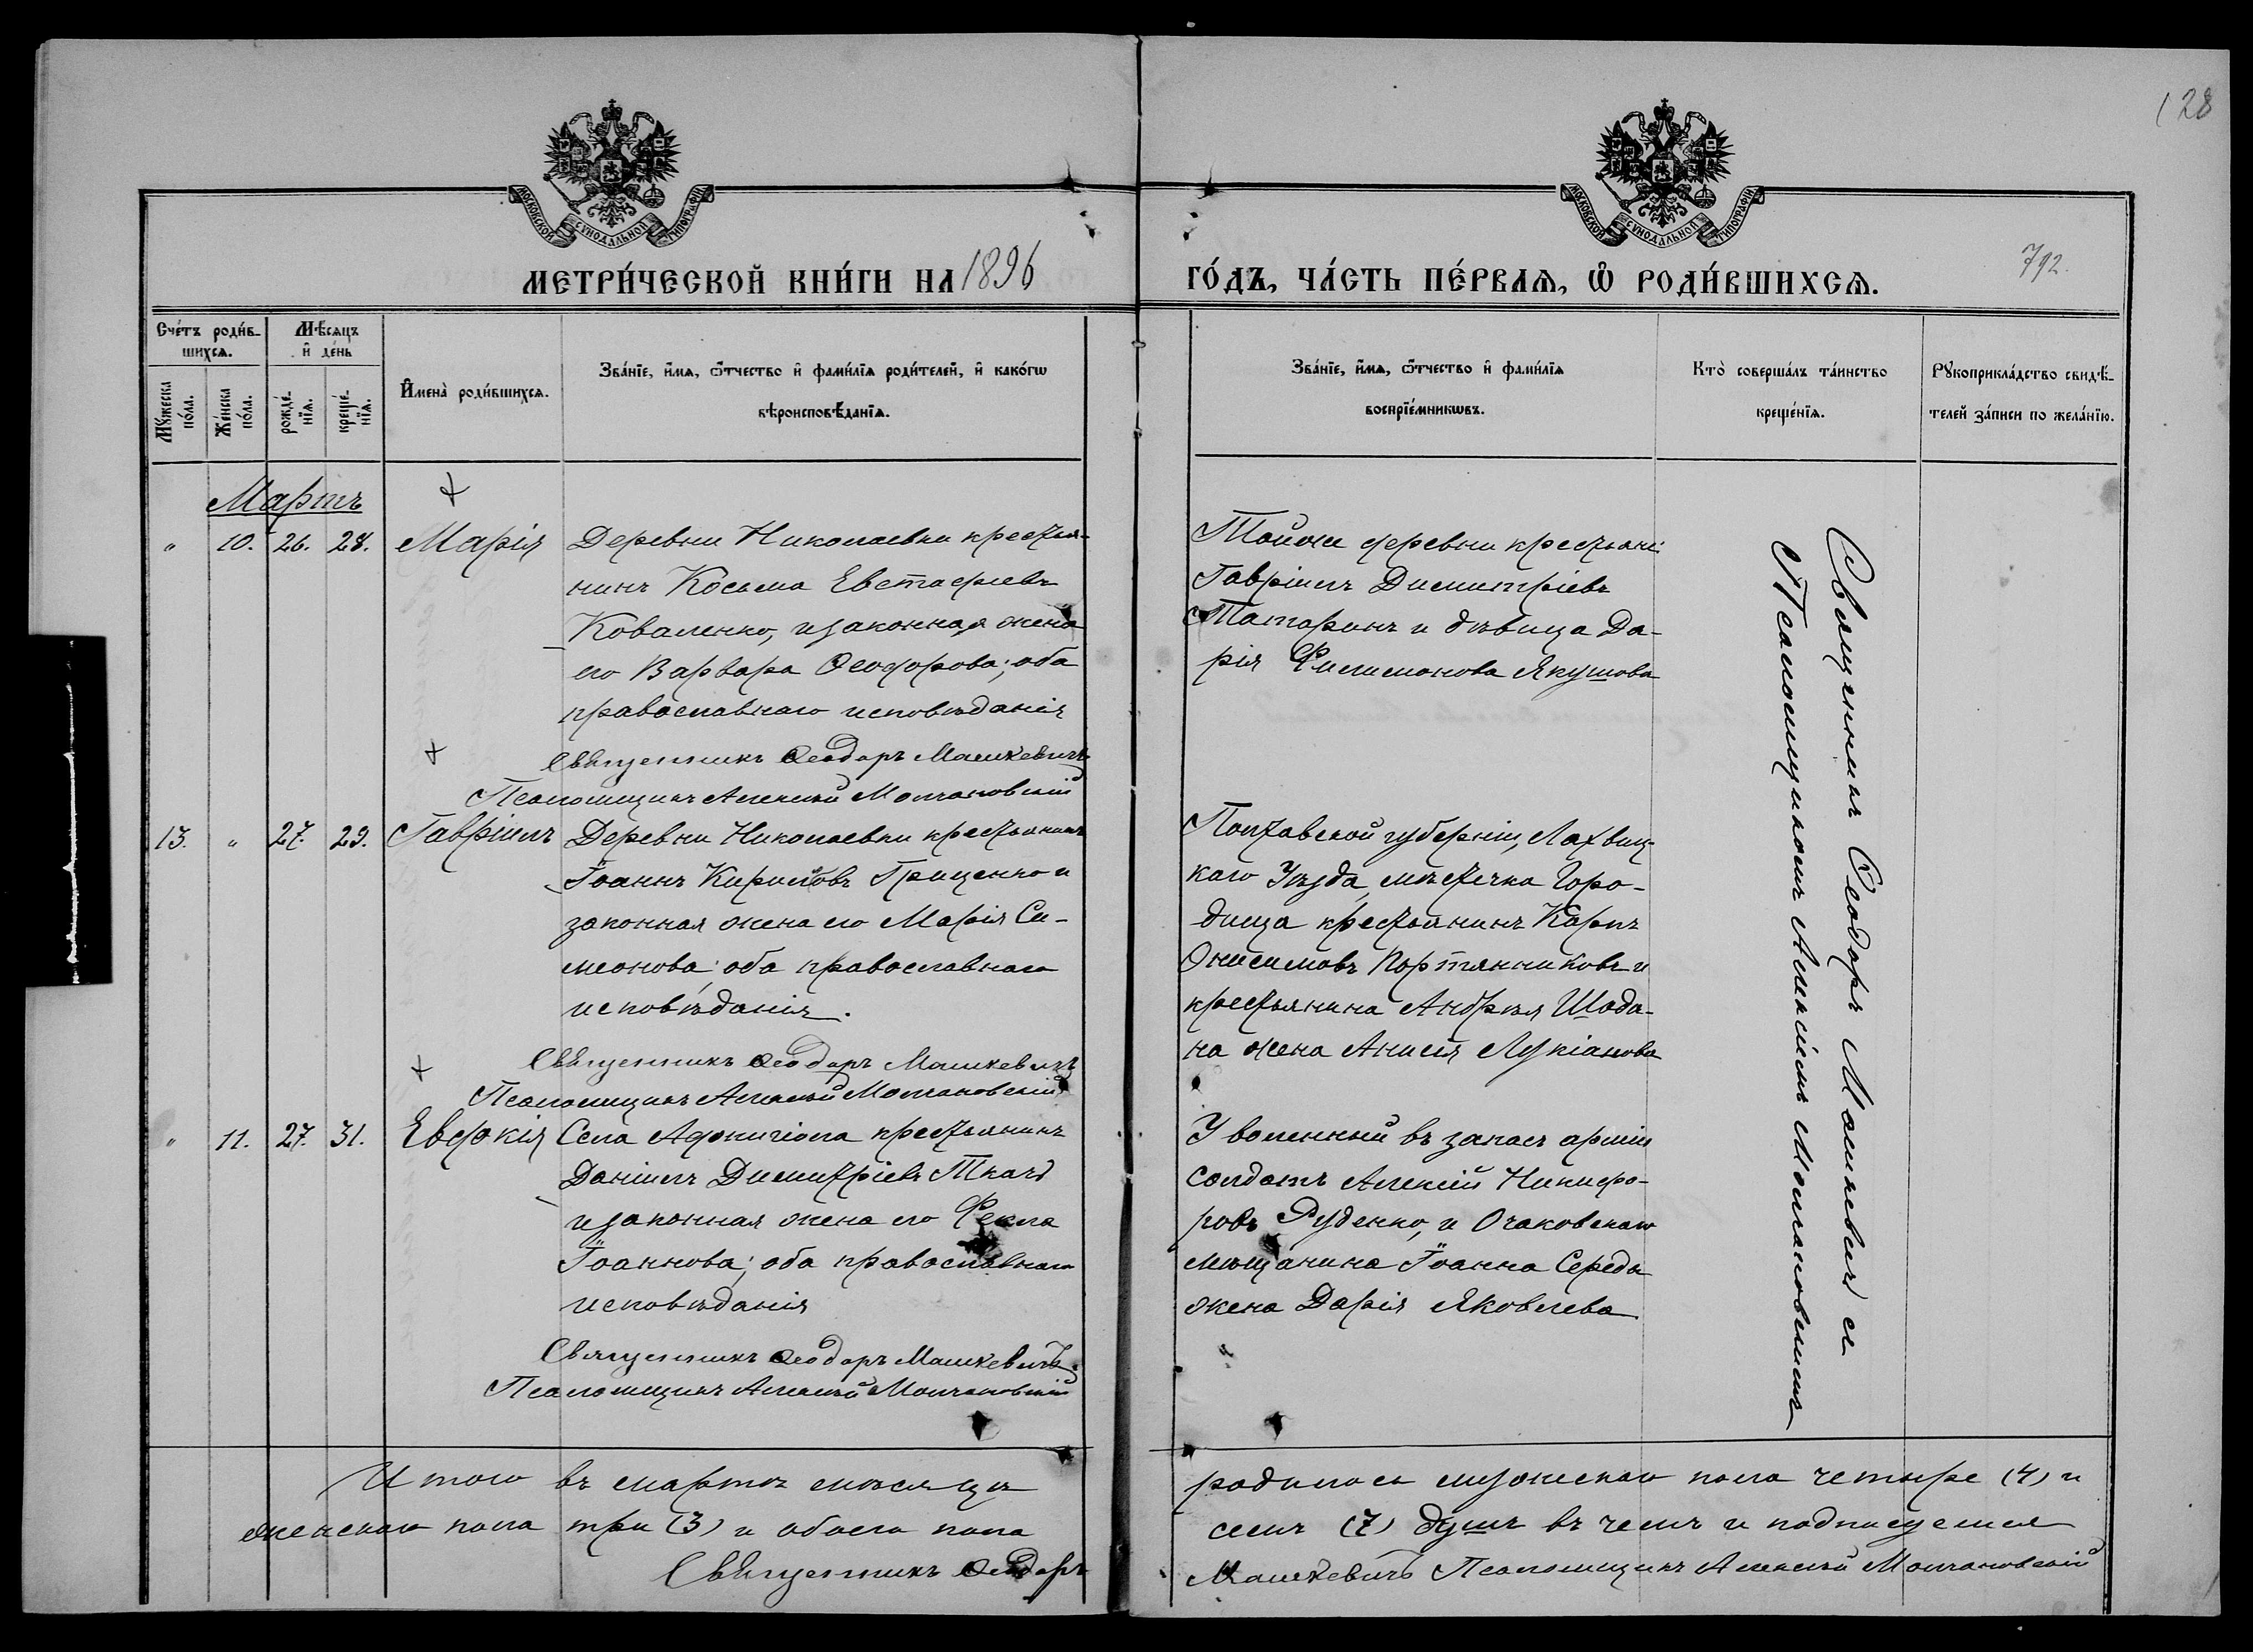 128
МОСКОВСКОЙ СѴНОДАЛЬНОЙ ТИПОГРАФІИ
МОСКОВСКОЙ СѴНОДАЛЬНОЙ ТИПОГРАФІИ
МЕТРИ́ЧЕСКОЙ КНИ́ГИ НА 1896
ГО́ДЪ, ЧА́СТЬ ПЕ́РВАѦ, Ѽ РОДИ́ВШИХСѦ.
792.
Сче́тъ роди́в-
шихсѧ.
Мѣ́сяцъ
и҆ де́нь
Мꙋ́жеска
по́ла.
Же́нска
по́ла.
рожде́-
нїѧ.
креще́-
нїѧ.
И҆мена̀ роди́вшихсѧ.
Зва́нїе, и҆́мѧ, ѻ҆́тчество и҆ фами́лїѧ роди́телей, и҆ како́гѡ
вѣроисповѣ́данїѧ.
Зва́нїе, и҆́мѧ, ѻ҆́тчество и҆ фами́лїѧ
воспрїе́мникѡвъ.
Кто̀ соверша́лъ та́инство
креще́нїѧ.
Рꙋкоприкла́дство свидѣ́-
телей за́писи по жела́нїю.
Мартъ
" 10. 26. 28. Марія Деревни Николаевки крестья-
нинъ Косьма Евстафіевъ
Коваленко, и законная жена
его Варвара Ѳеодорова; оба
православнаго исповѣданія
Священникъ Ѳеодоръ Машкевичъ
Псаломщикъ Алексій Молчановскій
Тойже деревни крестьяне:
Гавріилъ Димитріевъ
Татаринъ и дѣвица Да-
рія Филимонова Якушова
13. " 27. 29. Гавріилъ Деревни Николаевки крестьянинъ
Іоаннъ Кириловъ Гриценко и
законная жена его Марія Си-
меонова; оба православнаго
исповѣданія.
Священникъ Ѳеодоръ Машкевичъ
Псаломщикъ Алексій Молчановскій
Полтавской губерніи, Лохвиц-
каго Уѣзда, мѣстечка Горо-
дища крестьянинъ Карпъ
Онисимовъ Портянниковъ и
крестьянина Андрея Шода-
на жена Анисія Лукіанова
" 11. 27. 31. Евдокія Села Аджигіола крестьянинъ
Даніилъ Димитріевъ Ткачъ
и законная жена его Фекла
Іоаннова; оба православнаго
исповѣданія
Священникъ Ѳеодоръ Машкевичъ
Псаломщикъ Алексій Молчановскій
Уволенный въ запасъ арміи
солдатъ Алексій Никифо-
ровъ Руденко, и Очаковскаго
мѣщанина Іоанна Середы
жена Дарія Яковлева
Священникъ Ѳеодоръ Машкевичъ съ
Псаломщикомъ Алексіемъ Молчановскимъ
Итого въ мартѣ мѣсяцѣ родилось мужескаго пола четыре (4) и
женскаго пола три (3) и обоего пола семь (7) душъ въ чемъ и подписуемся
Священникъ Ѳеодоръ Машкевичъ Псаломщикъ Алексій Молчановскій